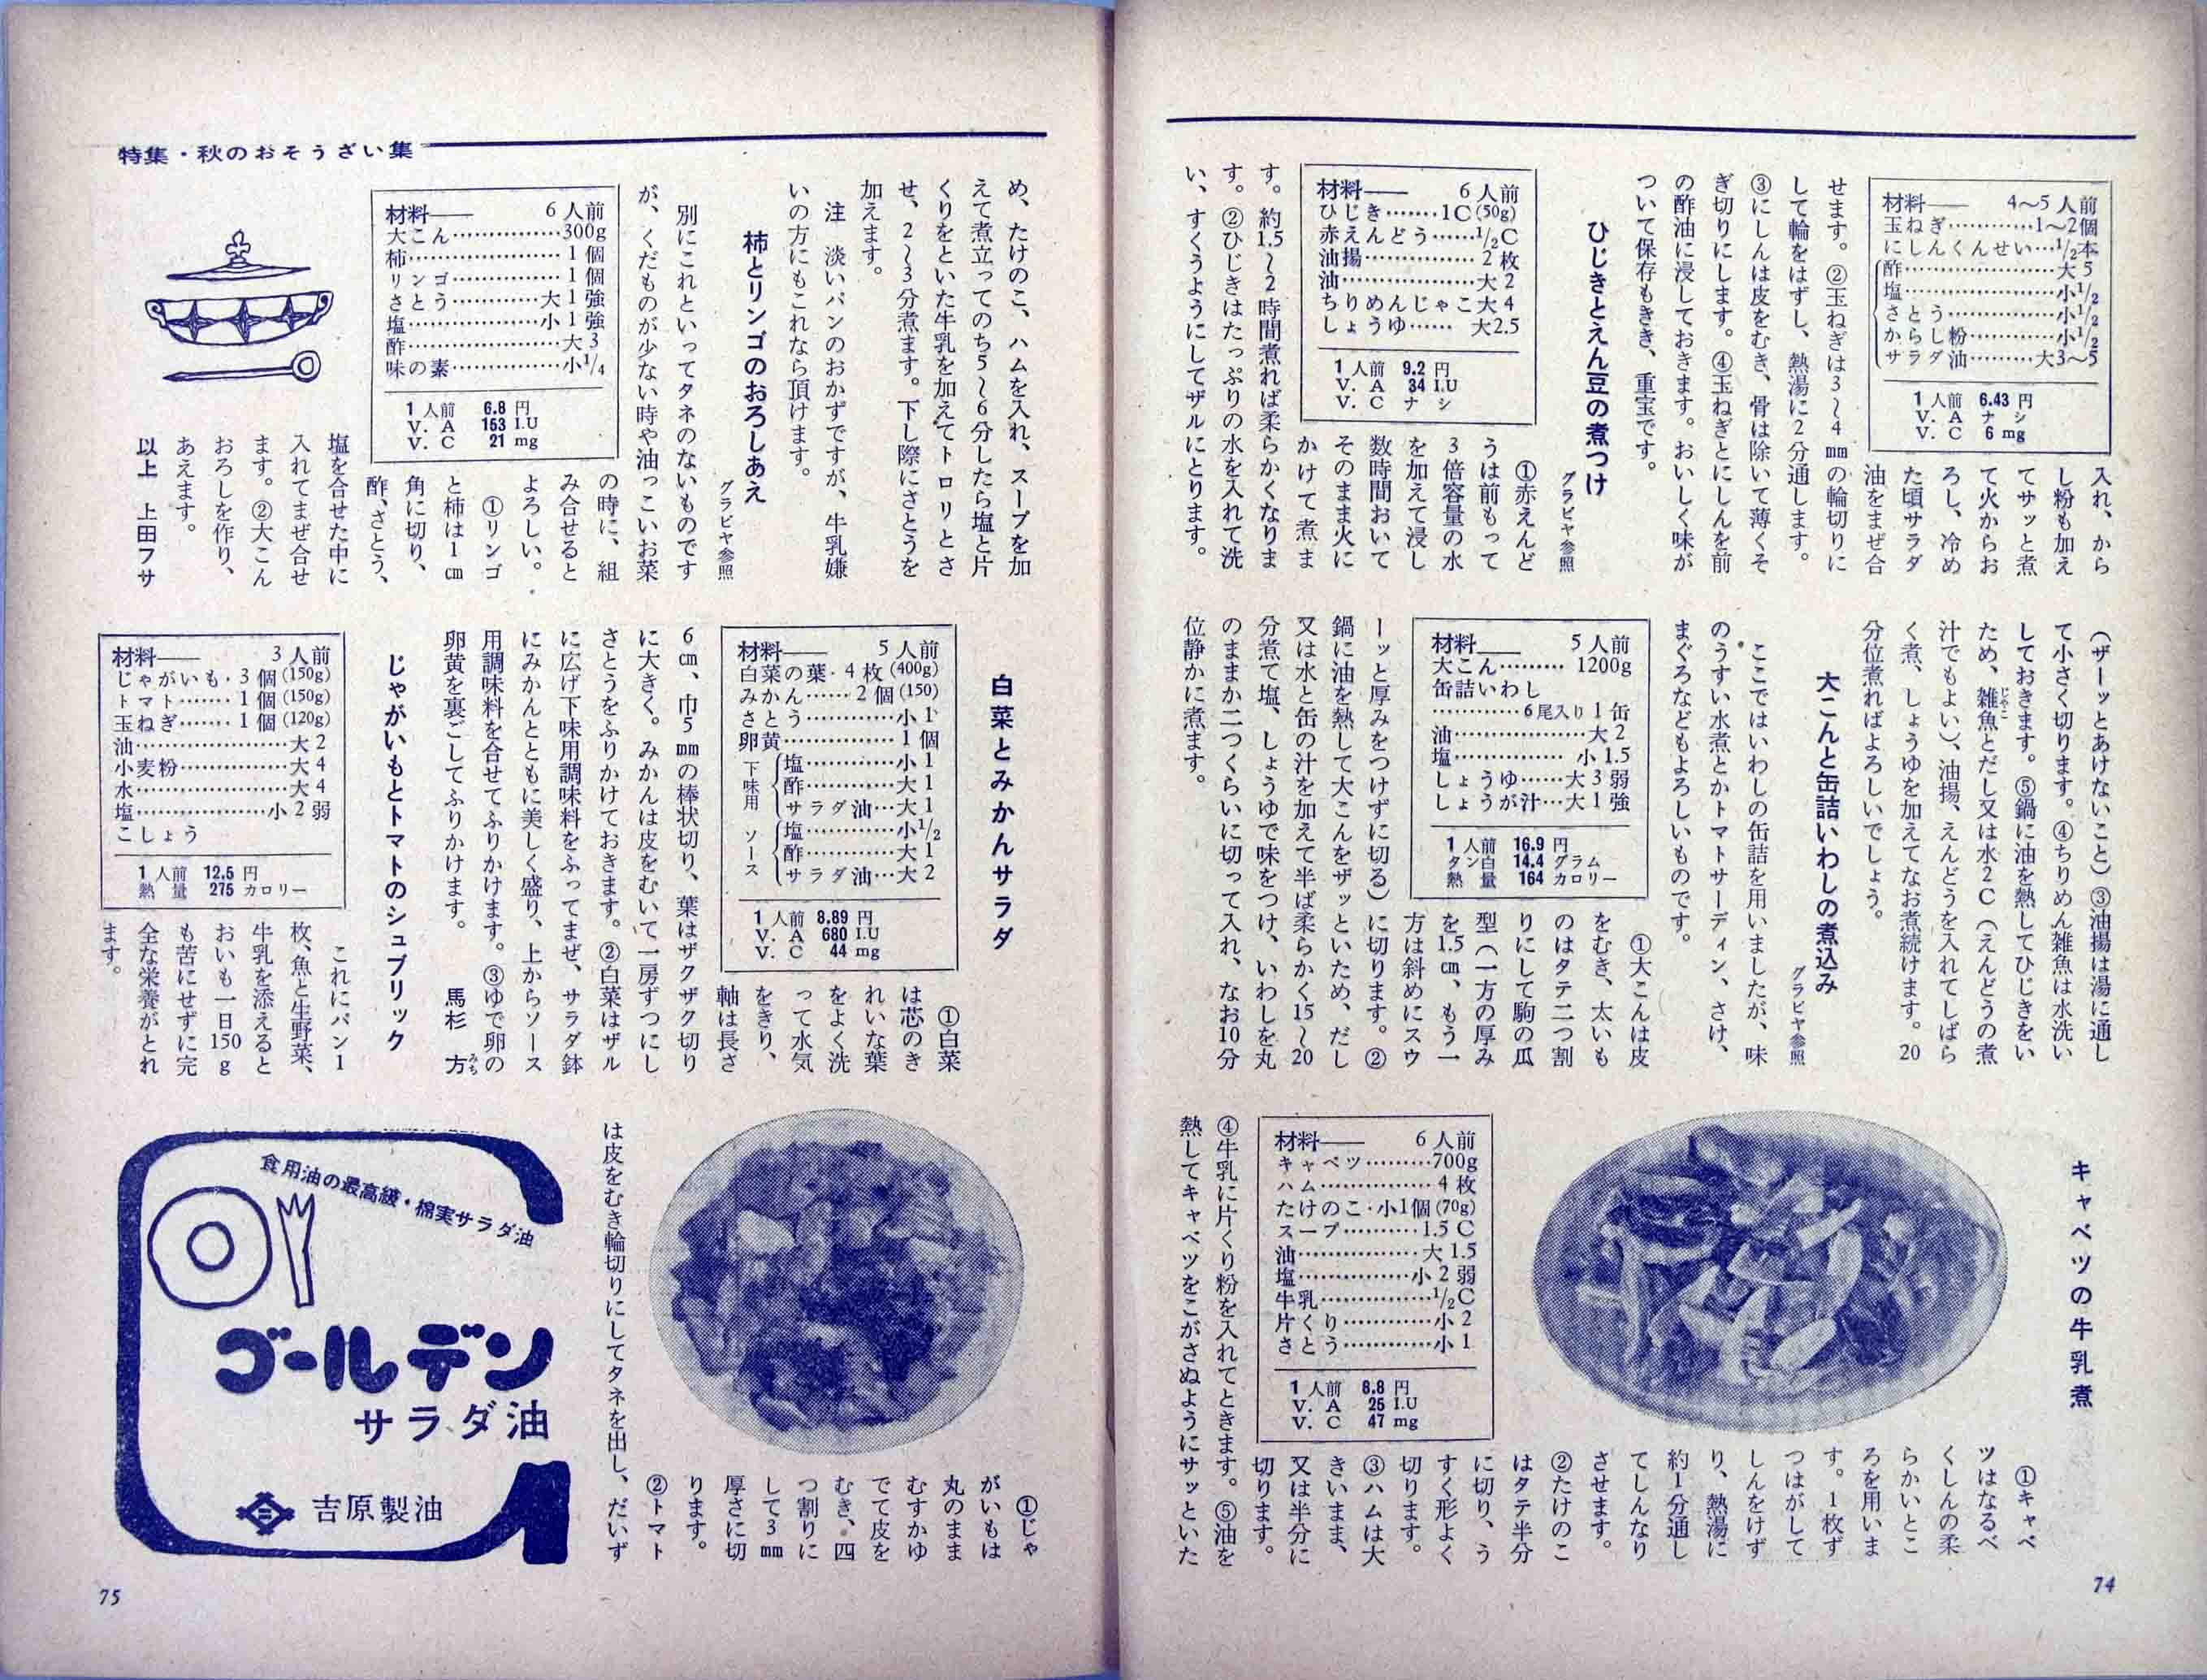 材料―― 4〜5人前
玉ねぎ…………1〜2個
にしんくんせい…1/2本
酢……………………大5
塩……………………小1/2
さとう………………小1/2
からし粉……………小1/2
サラダ油………大3〜5
1人前 6.43円
V. A ナシ
V. C 6mg
入れ、から
し粉も加え
てサッと煮
て火からお
ろし、冷め
た頃サラダ
油をまぜ合
せます。②玉ねぎは3〜4㎜の輪切りに
して輪をはずし、熱湯に2分通します。
③にしんは皮をむき、骨は除いて薄くそ
ぎ切りにします。④玉ねぎとにしんを前
の酢油に浸しておきます。おいしく味が
ついて保存もきき、重宝です。
ひじきとえん豆の煮つけ
グラビヤ参照
材料―― 6人前
ひじき………1C(50g)
赤えんどう……1/2C
油揚………………2枚
油…………………大2
ちりめんじゃこ大4
しょうゆ……大2.5
1人前 9.2円
V. A 34 I.U
V. C ナシ
①赤えんど
うは前もって
3倍容量の水
を加えて浸し
数時間おいて
そのまま火に
かけて煮ま
す。約1.5〜2時間煮れば柔らかくなりま
す。②ひじきはたっぷりの水を入れて洗
い、すくうようにしてザルにとります。
(ザーッとあけないこと)③油揚は湯に通し
て小さく切ります。④ちりめん雑魚は水洗い
しておきます。⑤鍋に油を熱してひじきをい
ため、雑魚とだし又は水2C(えんどうの煮
汁でもよい)、油揚、えんどうを入れてしばら
く煮、しょうゆを加えてなお煮続けます。20
分位煮ればよろしいでしょう。
大こんと缶詰いわしの煮込み
グラビヤ参照
ここではいわしの缶詰を用いましたが、味
のうすい水煮とかトマトサーディン、さけ、
まぐろなどもよろしいものです。
材料―― 5人前
大こん………1200g
缶詰いわし
…………6尾入り1缶
油…………………大2
塩………………小1.5
しょうゆ……大3弱
しょうが汁…大1強
1人前 16.9円
タン白 14.4グラム
熱量 164カロリー
①大こんは皮
をむき、太いも
のはタテ二つ割
りにして駒の瓜
型(一方の厚み
を1.5㎝、もう一
方は斜めにスウ
ーッと厚みをつけずに切る)に切ります。②
鍋に油を熱して大こんをザッといため、だし
又は水と缶の汁を加えて半ば柔らかく15〜20
分煮て塩、しょうゆで味をつけ、いわしを丸
のままか二つくらいに切って入れ、なお10分
位静かに煮ます。
キャベツの牛乳煮
①キャベ
ツはなるべ
くしんの柔
らかいとこ
ろを用いま
す。1枚ず
つはがして
しんをけず
り、熱湯に
約1分通し
てしんなり
させます。
②たけのこ
はタテ半分
に切り、う
すく形よく
切ります。
③ハムは大
きいまま、
又は半分に
切ります。
材料―― 6人前
キャベツ………700g
ハム………………4枚
たけのこ・小1個(70g)
スープ…………1.5C
油………………大1.5
塩………………小2弱
牛乳……………1/2C
片くり……………小2
さとう……………小1
1人前 8.8円
V. A 25 I.U
V. C 47mg
④牛乳に片くり粉を入れてときます。⑤油を
熱してキャベツをこがさぬようにサッといた
74
特集・秋のおそうざい集
め、たけのこ、ハムを入れ、スープを加
えて煮立ってのち5〜6分したら塩と片
くりをといた牛乳を加えてトロリとさ
せ、2〜3分煮ます。下し際にさとうを
加えます。
注 淡いパンのおかずですが、牛乳嫌
いの方にもこれなら頂けます。
柿とリンゴのおろしあえ
グラビヤ参照
別にこれといってタネのないものです
が、くだものが少ない時や油っこいお菜
の時に、組
み合せると
よろしい。
材料―― 6人前
大こん……………300g
柿…………………1個
リンゴ……………1個
さとう…………大1強
塩………………小1強
酢…………………大3
味の素……………小1/4
1人前 6.8円
V. A 153 I.U
V. C 21mg
①リンゴ
と柿は1㎝
角に切り、
酢、さとう、
塩を合せた中に
入れてまぜ合せ
ます。②大こん
おろしを作り、
あえます。
以上 上田フサ
白菜とみかんサラダ
材料―― 5人前
白菜の葉・4枚(400g)
みかん……2個(150)
さとう……………小1
卵黄………………1個
下味用
塩…………………小1
酢…………………大1
サラダ油…………大1
ソース
塩………………小1/2
酢…………………大1
サラダ油…………大2
1人前 8.89円
V. A 680 I.U
V. C 44mg
①白菜
は芯のき
れいな葉
をよく洗
って水気
をきり、
軸は長さ
6㎝、巾5㎜の棒状切り、葉はザクザク切り
に大きく。みかんは皮をむいて一房ずつにし
さとうをふりかけておきます。②白菜はザル
に広げ下味用調味料をふってまぜ、サラダ鉢
にみかんとともに美しく盛り、上からソース
用調味料を合せてふりかけます。③ゆで卵の
卵黄を裏ごしてふりかけます。 馬杉 方
じゃがいもとトマトのシュブリック
材料―― 3人前
じゃがいも・3個(150g)
トマト……1個(150g)
玉ねぎ……1個(120g)
油…………………大2
小麦粉……………大4
水…………………大4
塩………………小2弱
こしょう
1人前 12.5円
熱量 275カロリー
これにパン1
枚、魚と生野菜、
牛乳を添えると
おいも一日150g
も苦にせずに完
全な栄養がとれ
ます。
①じゃ
がいもは
丸のまま
むすかゆ
でて皮を
むき、四
つ割りに
して3㎜
厚さに切
ります。
②トマト
は皮をむき輪切りにしてタネを出し、だいず
食用油の最高級・棉実サラダ油
ゴールデン
サラダ油
吉原製油
75